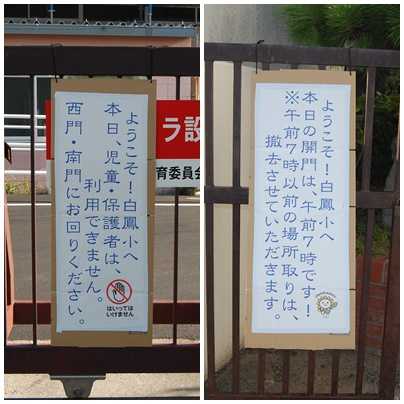 ようこそ！白鳳小へ
本日、児童・保護者は、
利用できません。
西門・南門にお回りください。
はいっては
いけません
ラ設
育委員会
ようこそ！白鳳小へ
本日の開門は、午前7時です！
※午前7時以前の場所取りは、
撤去させていただきます。